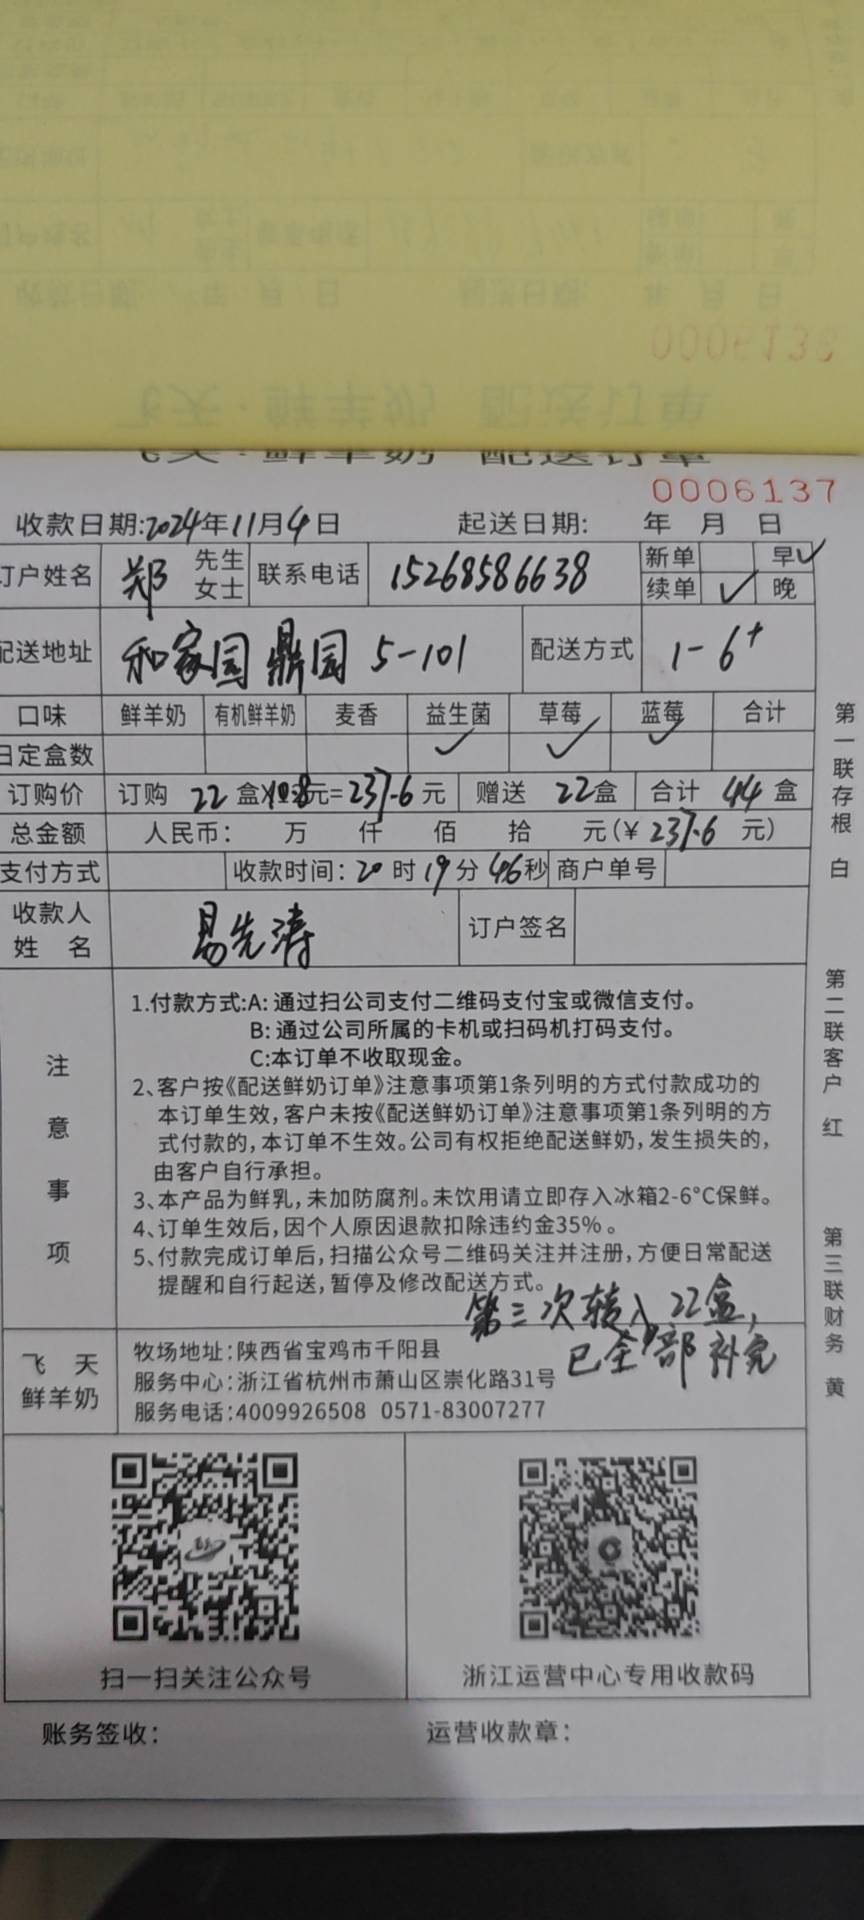 飞天·鲜羊奶 配送订单
0006137
收款日期:2024年11月4日 起送日期: 年 月 日
订户姓名 郑 先生 女士 联系电话 15268586638 新单 早✓
续单 ✓ 晚
配送地址 和家园鼎园 5-101 配送方式 1-6+
口味 鲜羊奶 有机鲜羊奶 麦香 益生菌 草莓 蓝莓 合计
日定盒数 ✓ ✓ ✓
订购价 订购 22 盒×10.8元=237.6元 赠送 22盒 合计 44 盒
总金额 人民币: 万 仟 佰 拾 元(¥ 237.6 元)
支付方式 收款时间: 20 时 19 分 46秒 商户单号
收款人姓 名 易先涛 订户签名
注意事项
1.付款方式:A: 通过扫公司支付二维码支付宝或微信支付。
B: 通过公司所属的卡机或扫码机打码支付。
C:本订单不收取现金。
2、客户按《配送鲜奶订单》注意事项第1条列明的方式付款成功的
本订单生效,客户未按《配送鲜奶订单》注意事项第1条列明的方
式付款的,本订单不生效。公司有权拒绝配送鲜奶,发生损失的,
由客户自行承担。
3、本产品为鲜乳,未加防腐剂。未饮用请立即存入冰箱2-6°C保鲜。
4、订单生效后,因个人原因退款扣除违约金35%。
5、付款完成订单后,扫描公众号二维码关注并注册,方便日常配送
提醒和自行起送,暂停及修改配送方式。
第三次转入22盒,
已全部补完
飞 天
鲜羊奶
牧场地址:陕西省宝鸡市千阳县
服务中心:浙江省杭州市萧山区崇化路31号
服务电话:4009926508 0571-83007277
扫一扫关注公众号 浙江运营中心专用收款码
账务签收: 运营收款章:
第一联存根 白
第二联客户 红
第三联财务 黄